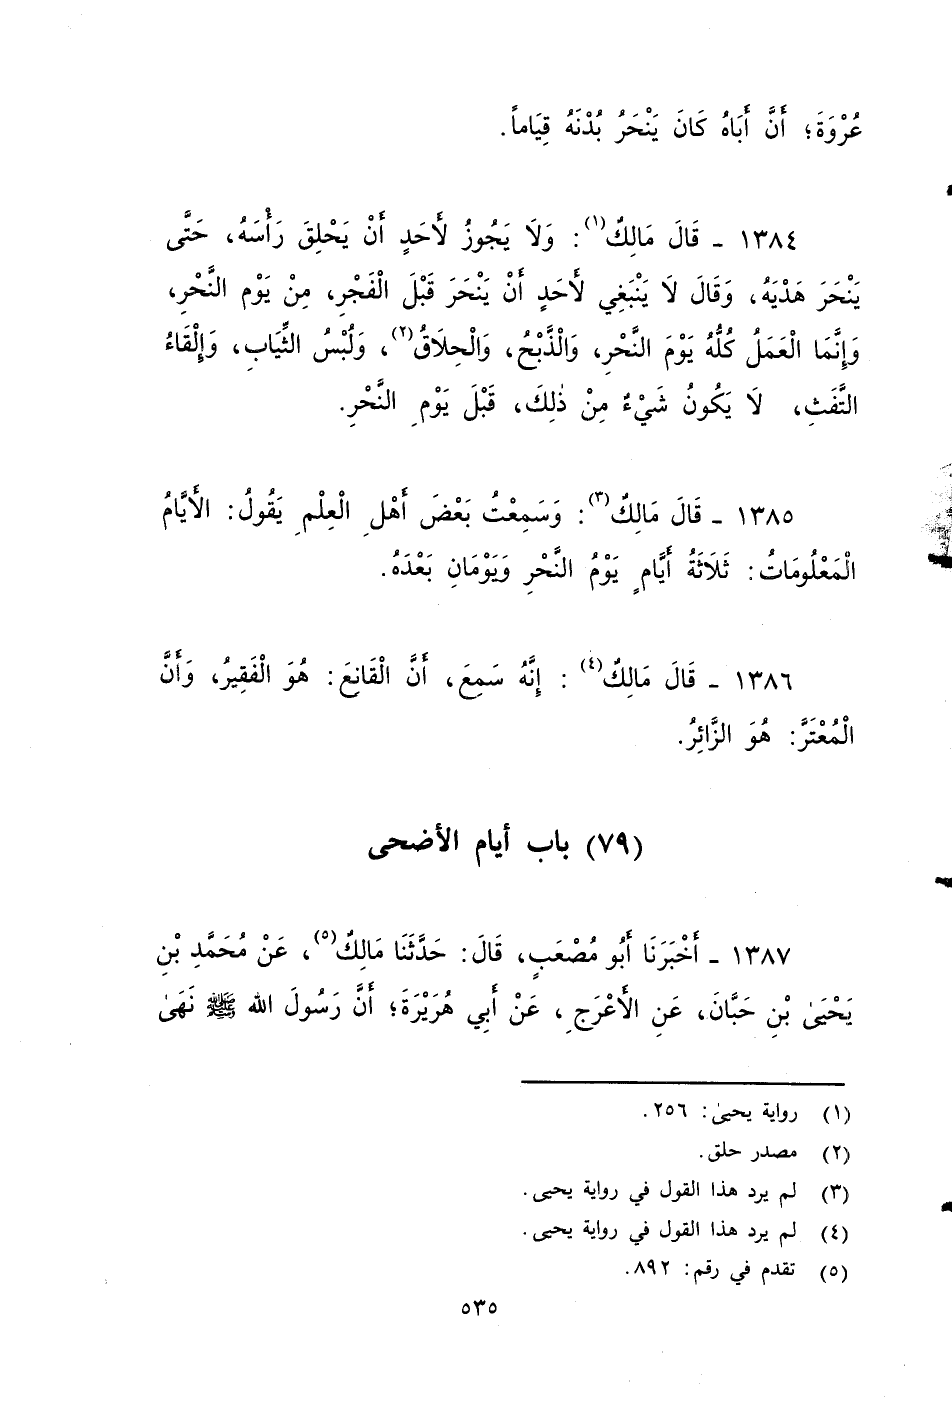 عُرْوَةَ؛ أَنَّ أَبَاهُ كَانَ يَنْحَرُ بُدْنَهُ قِيَاماً.
١٣٨٤ ـ قَالَ مَالِكٌ(١): وَلَا يَجُوزُ لأَحَدٍ أَنْ يَحْلِقَ رَأْسَهُ، حَتَّى
يَنْحَرَ هَدْيَهُ، وَقَالَ لَا يَنْبَغِي لأَحَدٍ أَنْ يَنْحَرَ قَبْلَ الْفَجْرِ، مِنْ يَوْمِ النَّحْرِ،
وَإِنَّمَا الْعَمَلُ كُلُّهُ يَوْمَ النَّحْرِ، وَالْذَّبْحُ، وَالْحِلَاقُ(٢)، وَلُبْسُ الثِّيَابِ، وَإِلْقَاءُ
التَّفَثِ، لَا يَكُونُ شَيْءٌ مِنْ ذٰلِكَ، قَبْلَ يَوْمِ النَّحْرِ.
١٣٨٥ ـ قَالَ مَالِكٌ(٣): وَسَمِعْتُ بَعْضَ أَهْلِ الْعِلْمِ يَقُولُ: الأَيَّامُ
الْمَعْلُومَاتُ: ثَلَاثَةُ أَيَّامٍ يَوْمُ النَّحْرِ وَيَوْمَانِ بَعْدَهُ.
١٣٨٦ ـ قَالَ مَالِكٌ(٤): إِنَّهُ سَمِعَ، أَنَّ الْقَانِعَ: هُوَ الْفَقِيرُ، وَأَنَّ
الْمُعْتَرَّ: هُوَ الزَّائِرُ.
(٧٩) باب أيام الأضحى
١٣٨٧ ـ أَخْبَرَنَا أَبُو مُصْعَبٍ، قَالَ: حَدَّثَنَا مَالِكٌ(٥)، عَنْ مُحَمَّدِ بْنِ
يَحْيَىٰ بْنِ حَبَّانَ، عَنِ الْأَعْرَجِ، عَنْ أَبِي هُرَيْرَةَ؛ أَنَّ رَسُولَ الله ﷺ نَهَىٰ
(١) رواية يحيىٰ: ٢٥٦.
(٢) مصدر حلق.
(٣) لم يرد هذا القول في رواية يحيى.
(٤) لم يرد هذا القول في رواية يحيى.
(٥) تقدم في رقم: ٨٩٢.
٥٣٥